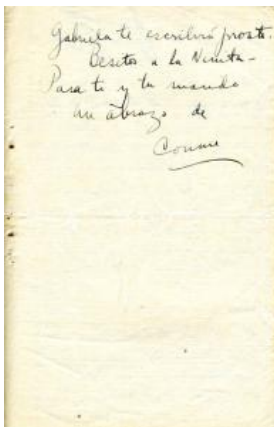 Gabriela te escribirá pronto.
Besitos a la Ninita -
Para ti y tu marido
un abrazo de
Connie